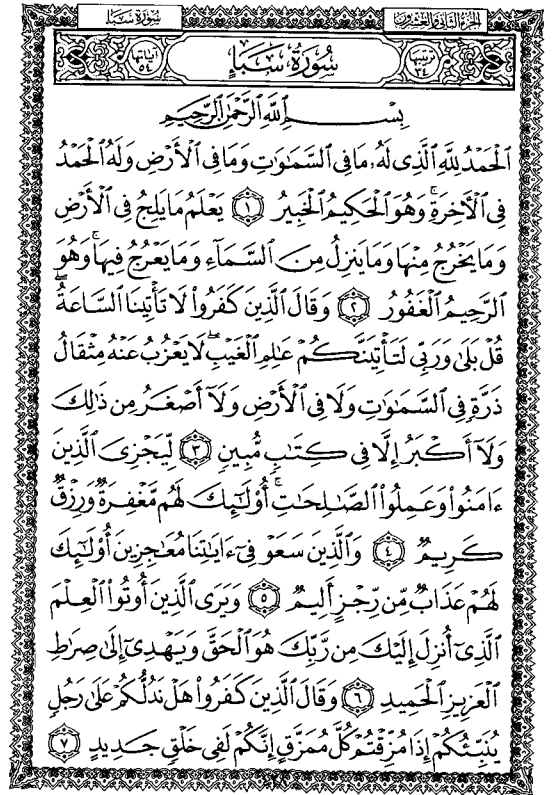 سُورَةُ سَبَإٍ
الجزء الثاني والعشرون
ترتيبها ٣٤
سُورَةُ سَبَإٍ
آياتها ٥٤
بِسْمِ ٱللَّهِ ٱلرَّحْمَٰنِ ٱلرَّحِيمِ
ٱلْحَمْدُ لِلَّهِ ٱلَّذِى لَهُۥ مَا فِى ٱلسَّمَٰوَٰتِ وَمَا فِى ٱلْأَرْضِ وَلَهُ ٱلْحَمْدُ
فِى ٱلْأَخِرَةِ ۚ وَهُوَ ٱلْحَكِيمُ ٱلْخَبِيرُ ١ يَعْلَمُ مَا يَلِجُ فِى ٱلْأَرْضِ
وَمَا يَخْرُجُ مِنْهَا وَمَا يَنزِلُ مِنَ ٱلسَّمَآءِ وَمَا يَعْرُجُ فِيهَا ۚ وَهُوَ
ٱلرَّحِيمُ ٱلْغَفُورُ ٢ وَقَالَ ٱلَّذِينَ كَفَرُوا۟ لَا تَأْتِينَا ٱلسَّاعَةُ ۖ
قُلْ بَلَىٰ وَرَبِّى لَتَأْتِيَنَّكُمْ عَٰلِمِ ٱلْغَيْبِ ۖ لَا يَعْزُبُ عَنْهُ مِثْقَالُ
ذَرَّةٍ فِى ٱلسَّمَٰوَٰتِ وَلَا فِى ٱلْأَرْضِ وَلَآ أَصْغَرُ مِن ذَٰلِكَ
وَلَآ أَكْبَرُ إِلَّا فِى كِتَٰبٍ مُّبِينٍ ٣ لِّيَجْزِىَ ٱلَّذِينَ
ءَامَنُوا۟ وَعَمِلُوا۟ ٱلصَّٰلِحَٰتِ ۚ أُو۟لَٰٓئِكَ لَهُم مَّغْفِرَةٌ وَرِزْقٌ
كَرِيمٌ ٤ وَٱلَّذِينَ سَعَوْ فِىٓ ءَايَٰتِنَا مُعَٰجِزِينَ أُو۟لَٰٓئِكَ
لَهُمْ عَذَابٌ مِّن رِّجْزٍ أَلِيمٌ ٥ وَيَرَى ٱلَّذِينَ أُوتُوا۟ ٱلْعِلْمَ
ٱلَّذِىٓ أُنزِلَ إِلَيْكَ مِن رَّبِّكَ هُوَ ٱلْحَقَّ وَيَهْدِىٓ إِلَىٰ صِرَٰطِ
ٱلْعَزِيزِ ٱلْحَمِيدِ ٦ وَقَالَ ٱلَّذِينَ كَفَرُوا۟ هَلْ نَدُلُّكُمْ عَلَىٰ رَجُلٍ
يُنَبِّئُكُمْ إِذَا مُزِّقْتُمْ كُلَّ مُمَزَّقٍ إِنَّكُمْ لَفِى خَلْقٍ جَدِيدٍ ٧